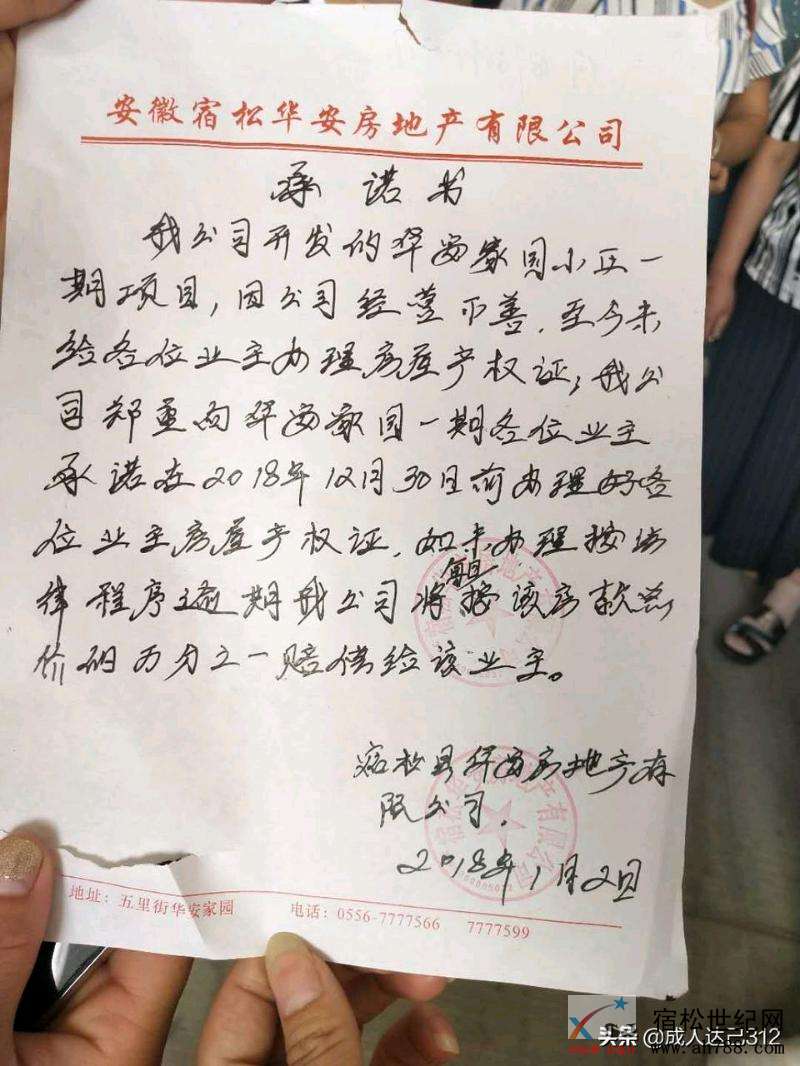 安徽宿松华安房地产有限公司
承诺书
我公司开发的华安家园小区一
期项目，因公司经营不善，至今未
给各位业主办理房屋产权证，我公
司郑重向华安家园一期各位业主
承诺在2018年12月30日前办理好各
位业主房屋产权证，如未办理按法
律程序逾期我公司将每日按该房款总
价的万分之一赔偿给该业主。
宿松县华安房地产有
限公司.
2018年1月2日
地址：五里街华安家园 电话：0556-7777566 7777599
宿松世纪网
头条@成人达己312
www.ah788.com